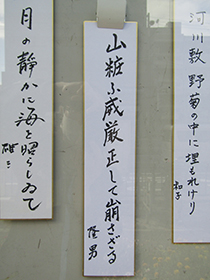 河川敷野菊の中に埋もれけり
和子
山粧ふ威厳正して崩さざる
隆男
月の静かに海を照らしゐて
雄三